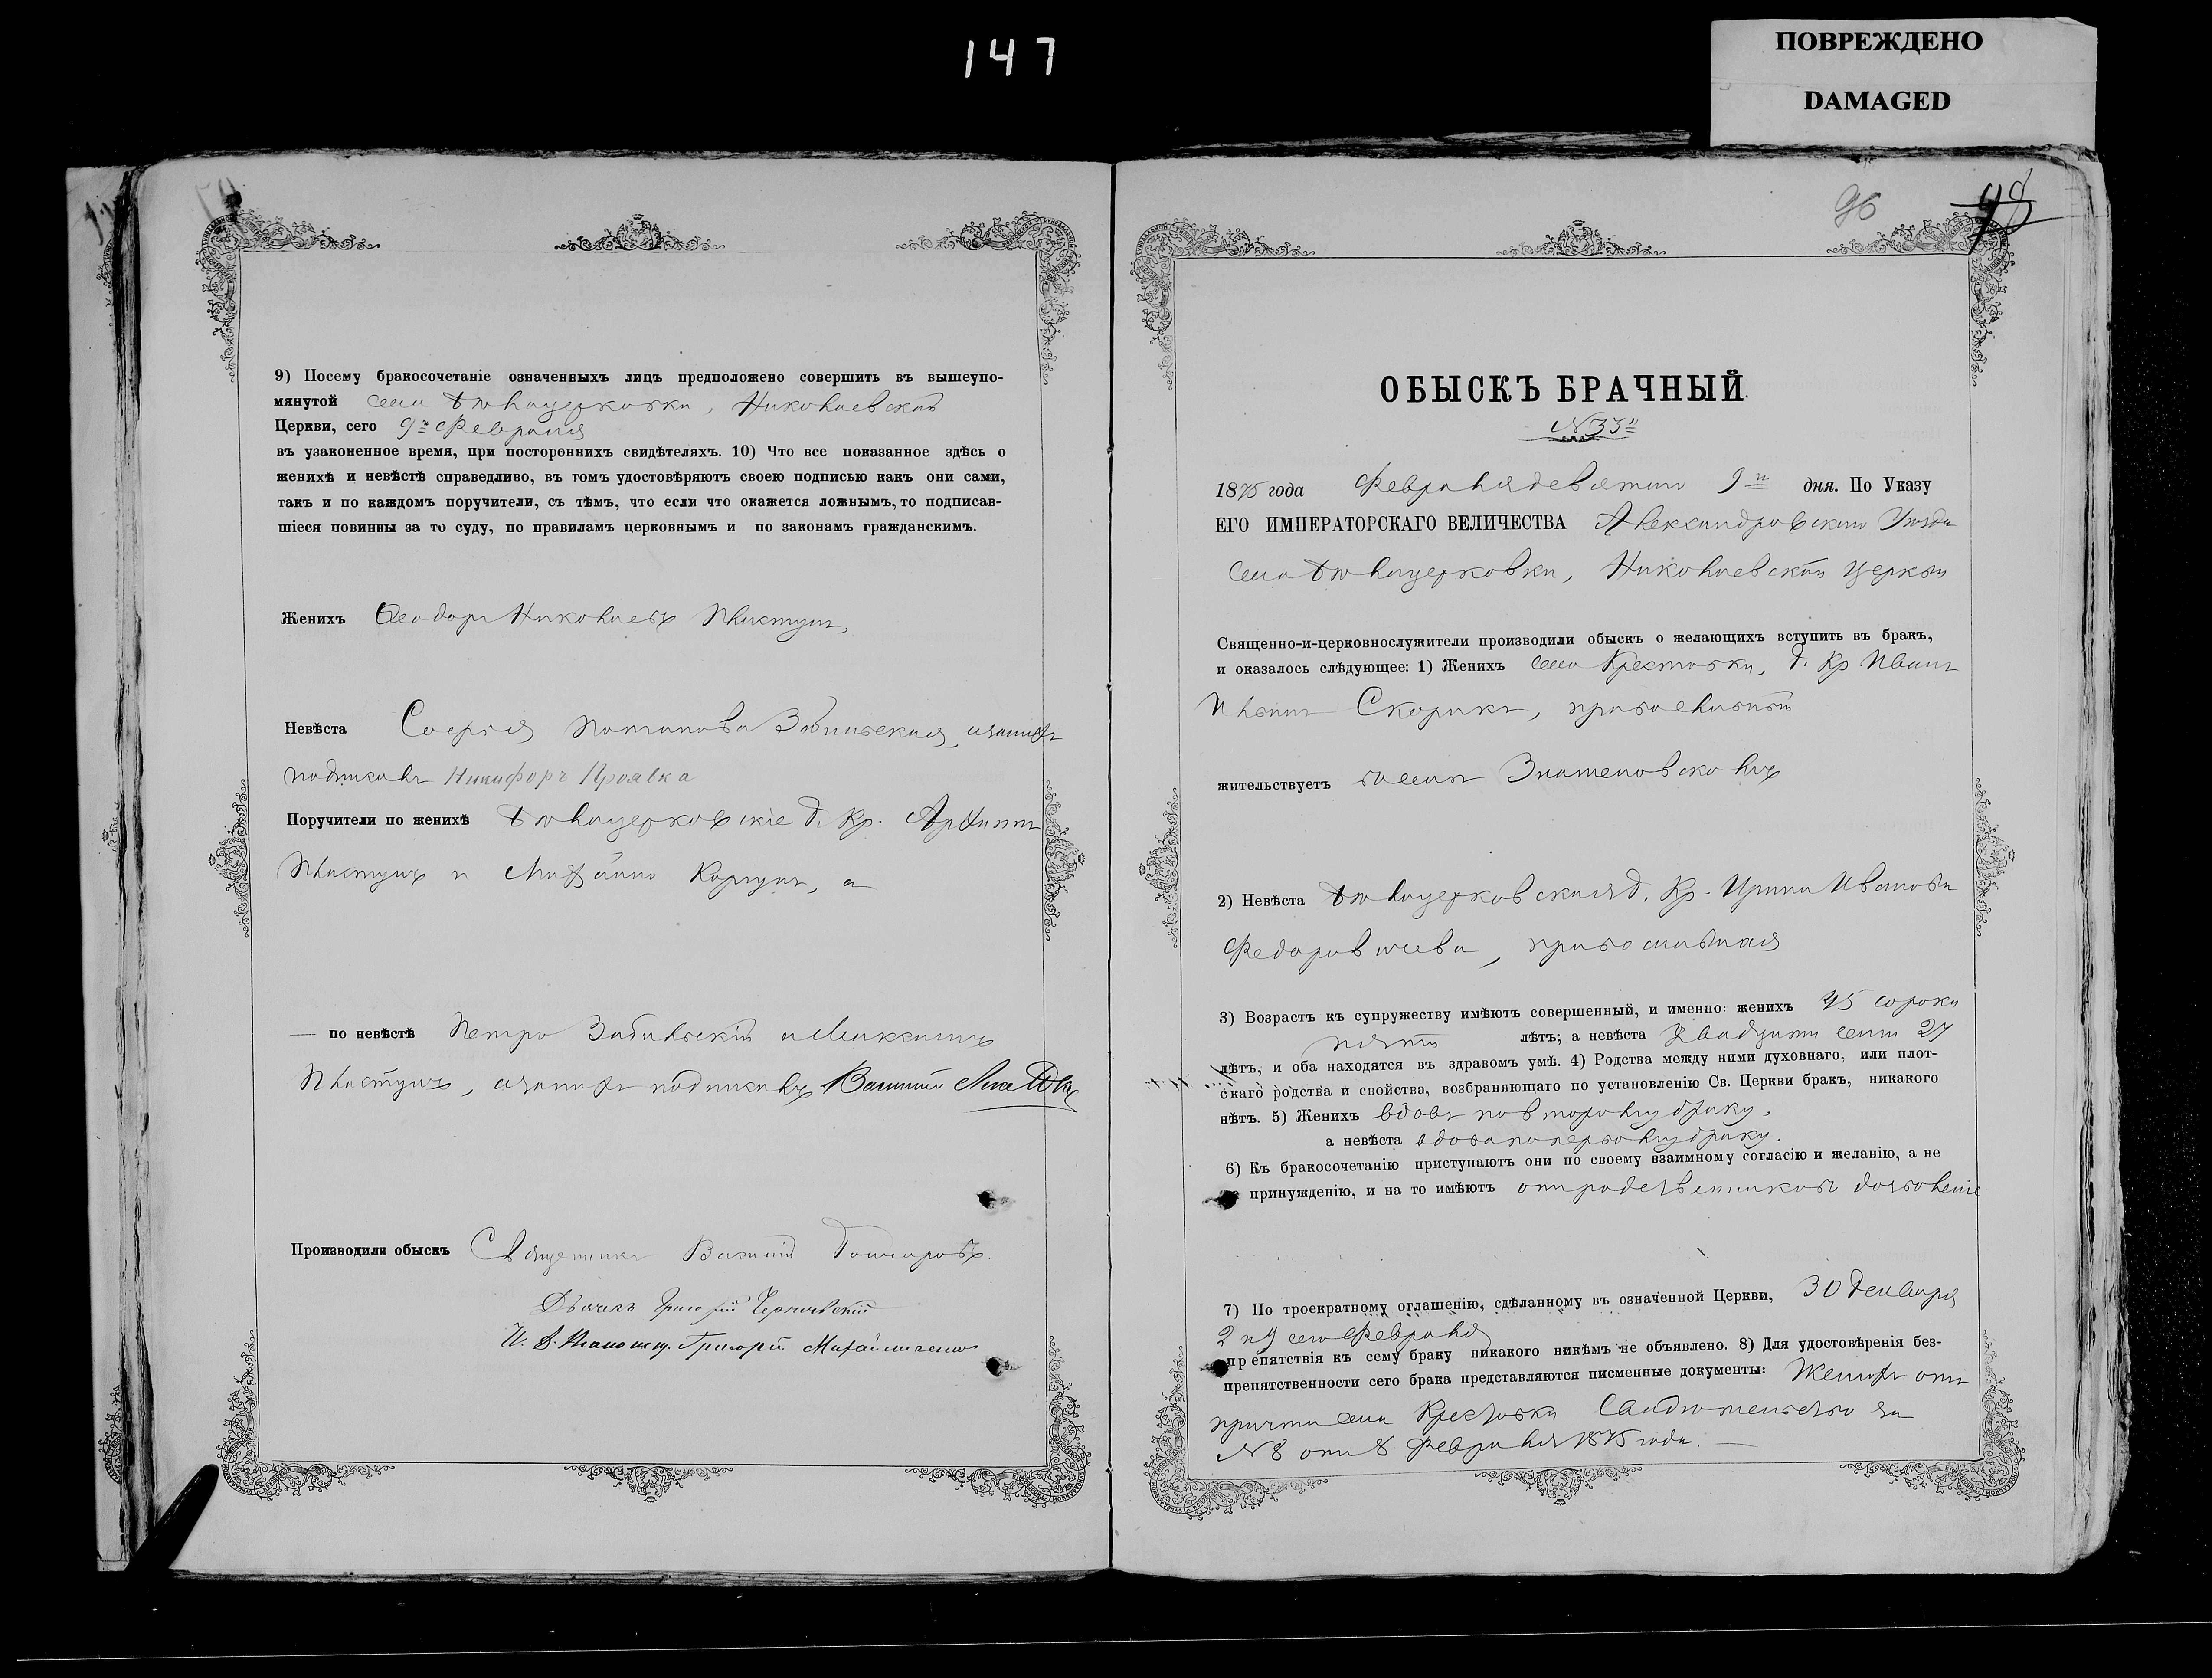 147
ПОВРЕЖДЕНО
DAMAGED
9) Посему бракосочетаніе означенныхъ лицъ предположено совершить въ вышеупо-
мянутой села Бѣлоцерковки, Николаевской
Церкви, сего 9го Февраля
въ узаконенное время, при постороннихъ свидѣтеляхъ. 10) Что все показанное здѣсь о
женихѣ и невѣстѣ справедливо, въ томъ удостовѣряютъ своею подписью какъ они сами,
такъ и по каждомъ поручители, съ тѣмъ, что если что окажется ложнымъ, то подписав-
шіеся повинны за то суду, по правиламъ церковнымъ и по законамъ гражданскимъ.
Женихъ Ѳеодоръ Николаевъ Пластунъ,
Невѣста Софія Потапова, а за нихъ
подписалъ Никифоръ Проявка
Поручители по женихѣ Бѣлоцерковскіе д. кр. Архипъ
Пластунъ и Михаилъ Коргунъ, а
— по невѣстѣ Петро и Максимъ
Пластунъ, а за нихъ подписалъ Василій
Производили обыскъ Священникъ Василій Гончаровъ.
Дьячекъ Григорій Чернявскій
И. д. Григорій Михайличенко
96
98
ОБЫСКЪ БРАЧНЫЙ
N 33й
1875 года Февраля девятаго 9го дня. По Указу
ЕГО ИМПЕРАТОРСКАГО ВЕЛИЧЕСТВА Александровскаго Уѣзда
Села Бѣлоцерковки, Николаевской церкви
Священно-и-церковнослужители производили обыскъ о желающихъ вступить въ бракъ,
и оказалось слѣдующее: 1) Женихъ села Крестовки, д. кр Иванъ
Скорикъ, православный
жительствуетъ Знаменовскомъ
2) Невѣста Бѣлоцерковская д. Кр. Ирина Иванова
Федоровичева, православная
3) Возрастъ къ супружеству имѣютъ совершенный, и именно: женихъ 45 сорокъ
пять лѣтъ; а невѣста двадцать семь 27
лѣтъ, и оба находятся въ здравомъ умѣ. 4) Родства между ними духовнаго, или плот-
скаго родства и свойства, возбраняющаго по установленію Св. Церкви бракъ, никакого
нѣтъ. 5) Женихъ вдовъ по второму браку,
а невѣста вдова по первому браку.
6) Къ бракосочетанію приступаютъ они по своему взаимному согласію и желанію, а не
принужденію, и на то имѣютъ отъ родственниковъ дозволеніе
7) По троекратному оглашенію, сдѣланному въ означенной Церкви, 30
2 и 9 сего Февраля
препятствія къ сему браку никакого никѣмъ не объявлено. 8) Для удостовѣренія без-
препятственности сего брака представляются писменные документы: Женихъ отъ
причта села Крестовки Свидѣтельство за
N 8 отъ 8 Февраля 1875 года. —